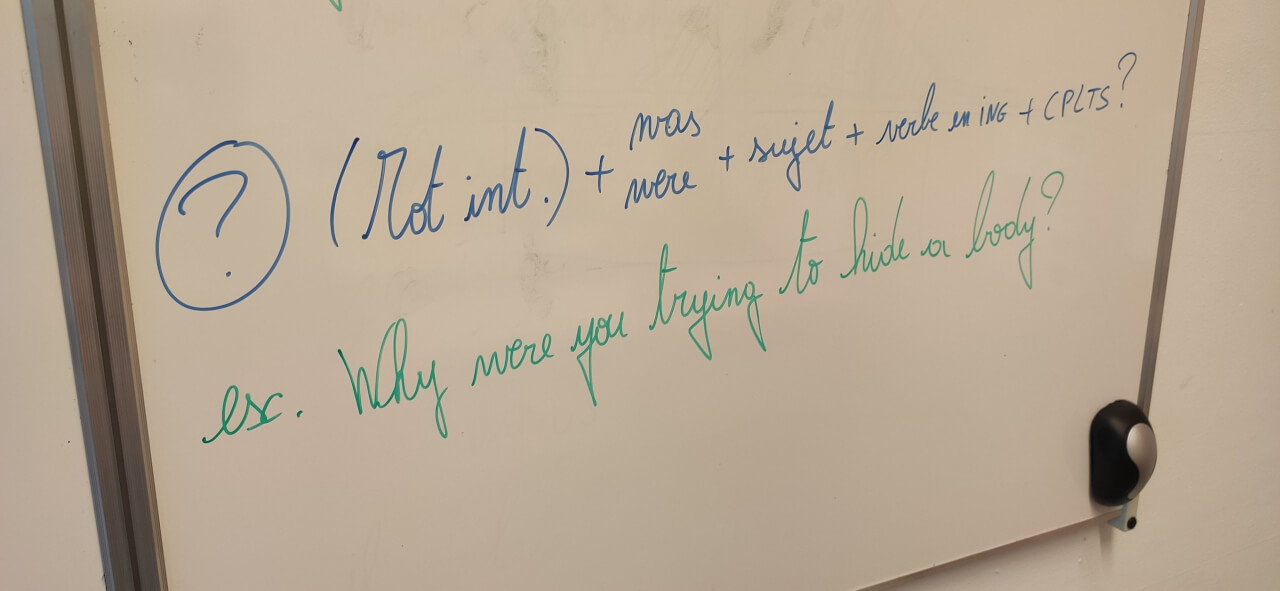 ? (Mot int.) + was were + sujet + verbe en ING + CPLTS?
ex. Why were you trying to hide a body?